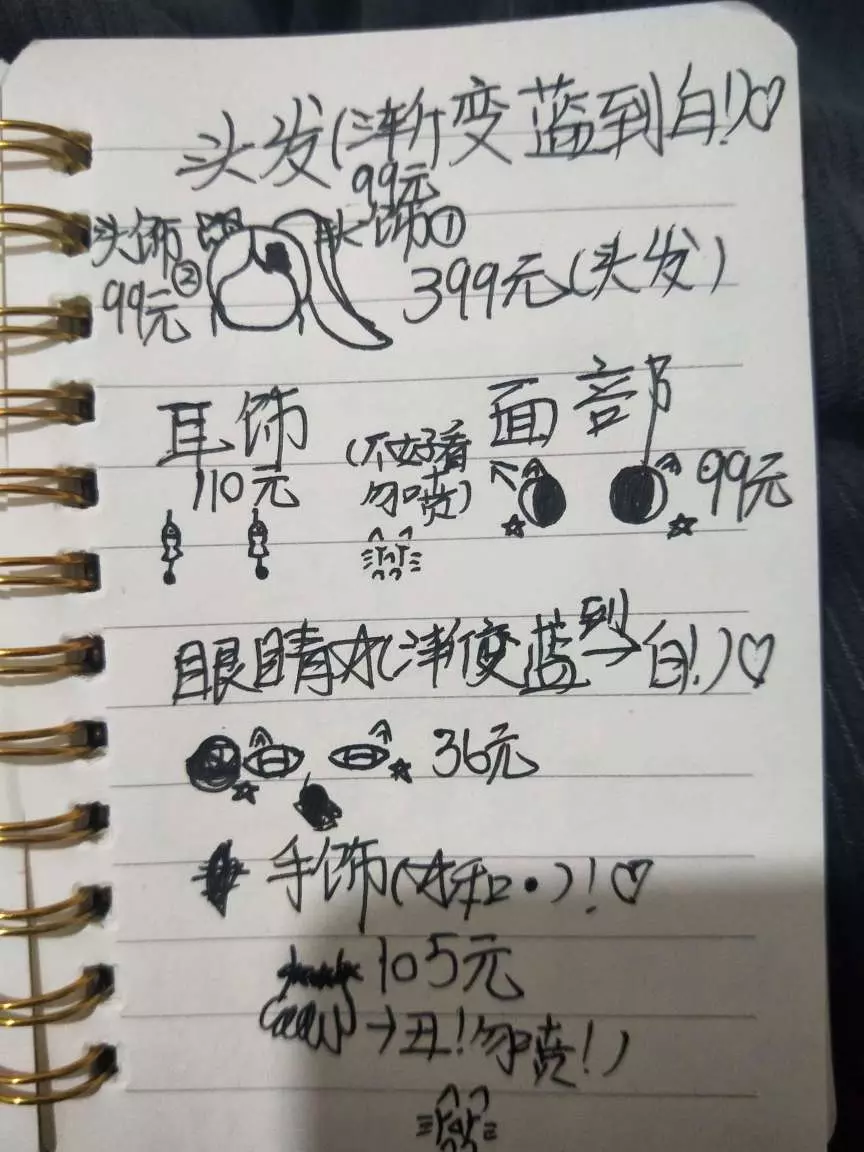 头发(渐变蓝到白!)♡
99元
头饰② 头饰①
99元 399元(头发)
耳饰 面部
110元 (不好看 99元
勿喷)
眼睛(渐变蓝到→白!)♡
36元
手饰(和•)!♡
105元
→丑!勿喷!)